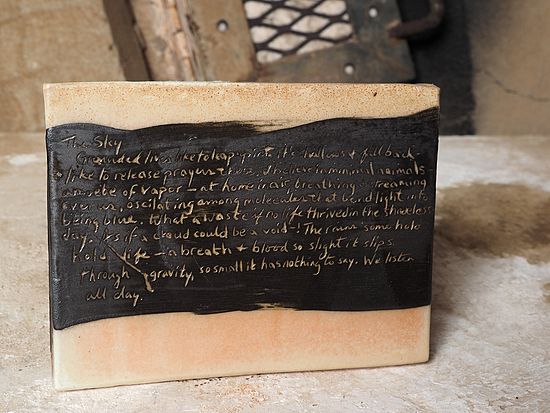 The Sky
Grounded lives like to leap + pirit, it's hallows + fall back
like to release prayers there, I believe in minimal animals
made of vapor - at home in air, breathing + streaming
over us, oscillating among molecules that bend light into
being blue. What a waste if no life thrived in the shapeless
day. As if a cloud could be a void! The rain some hole
hold life - a breath + blood so slight it slips
through gravity, so small it has nothing to say. We listen
all day.